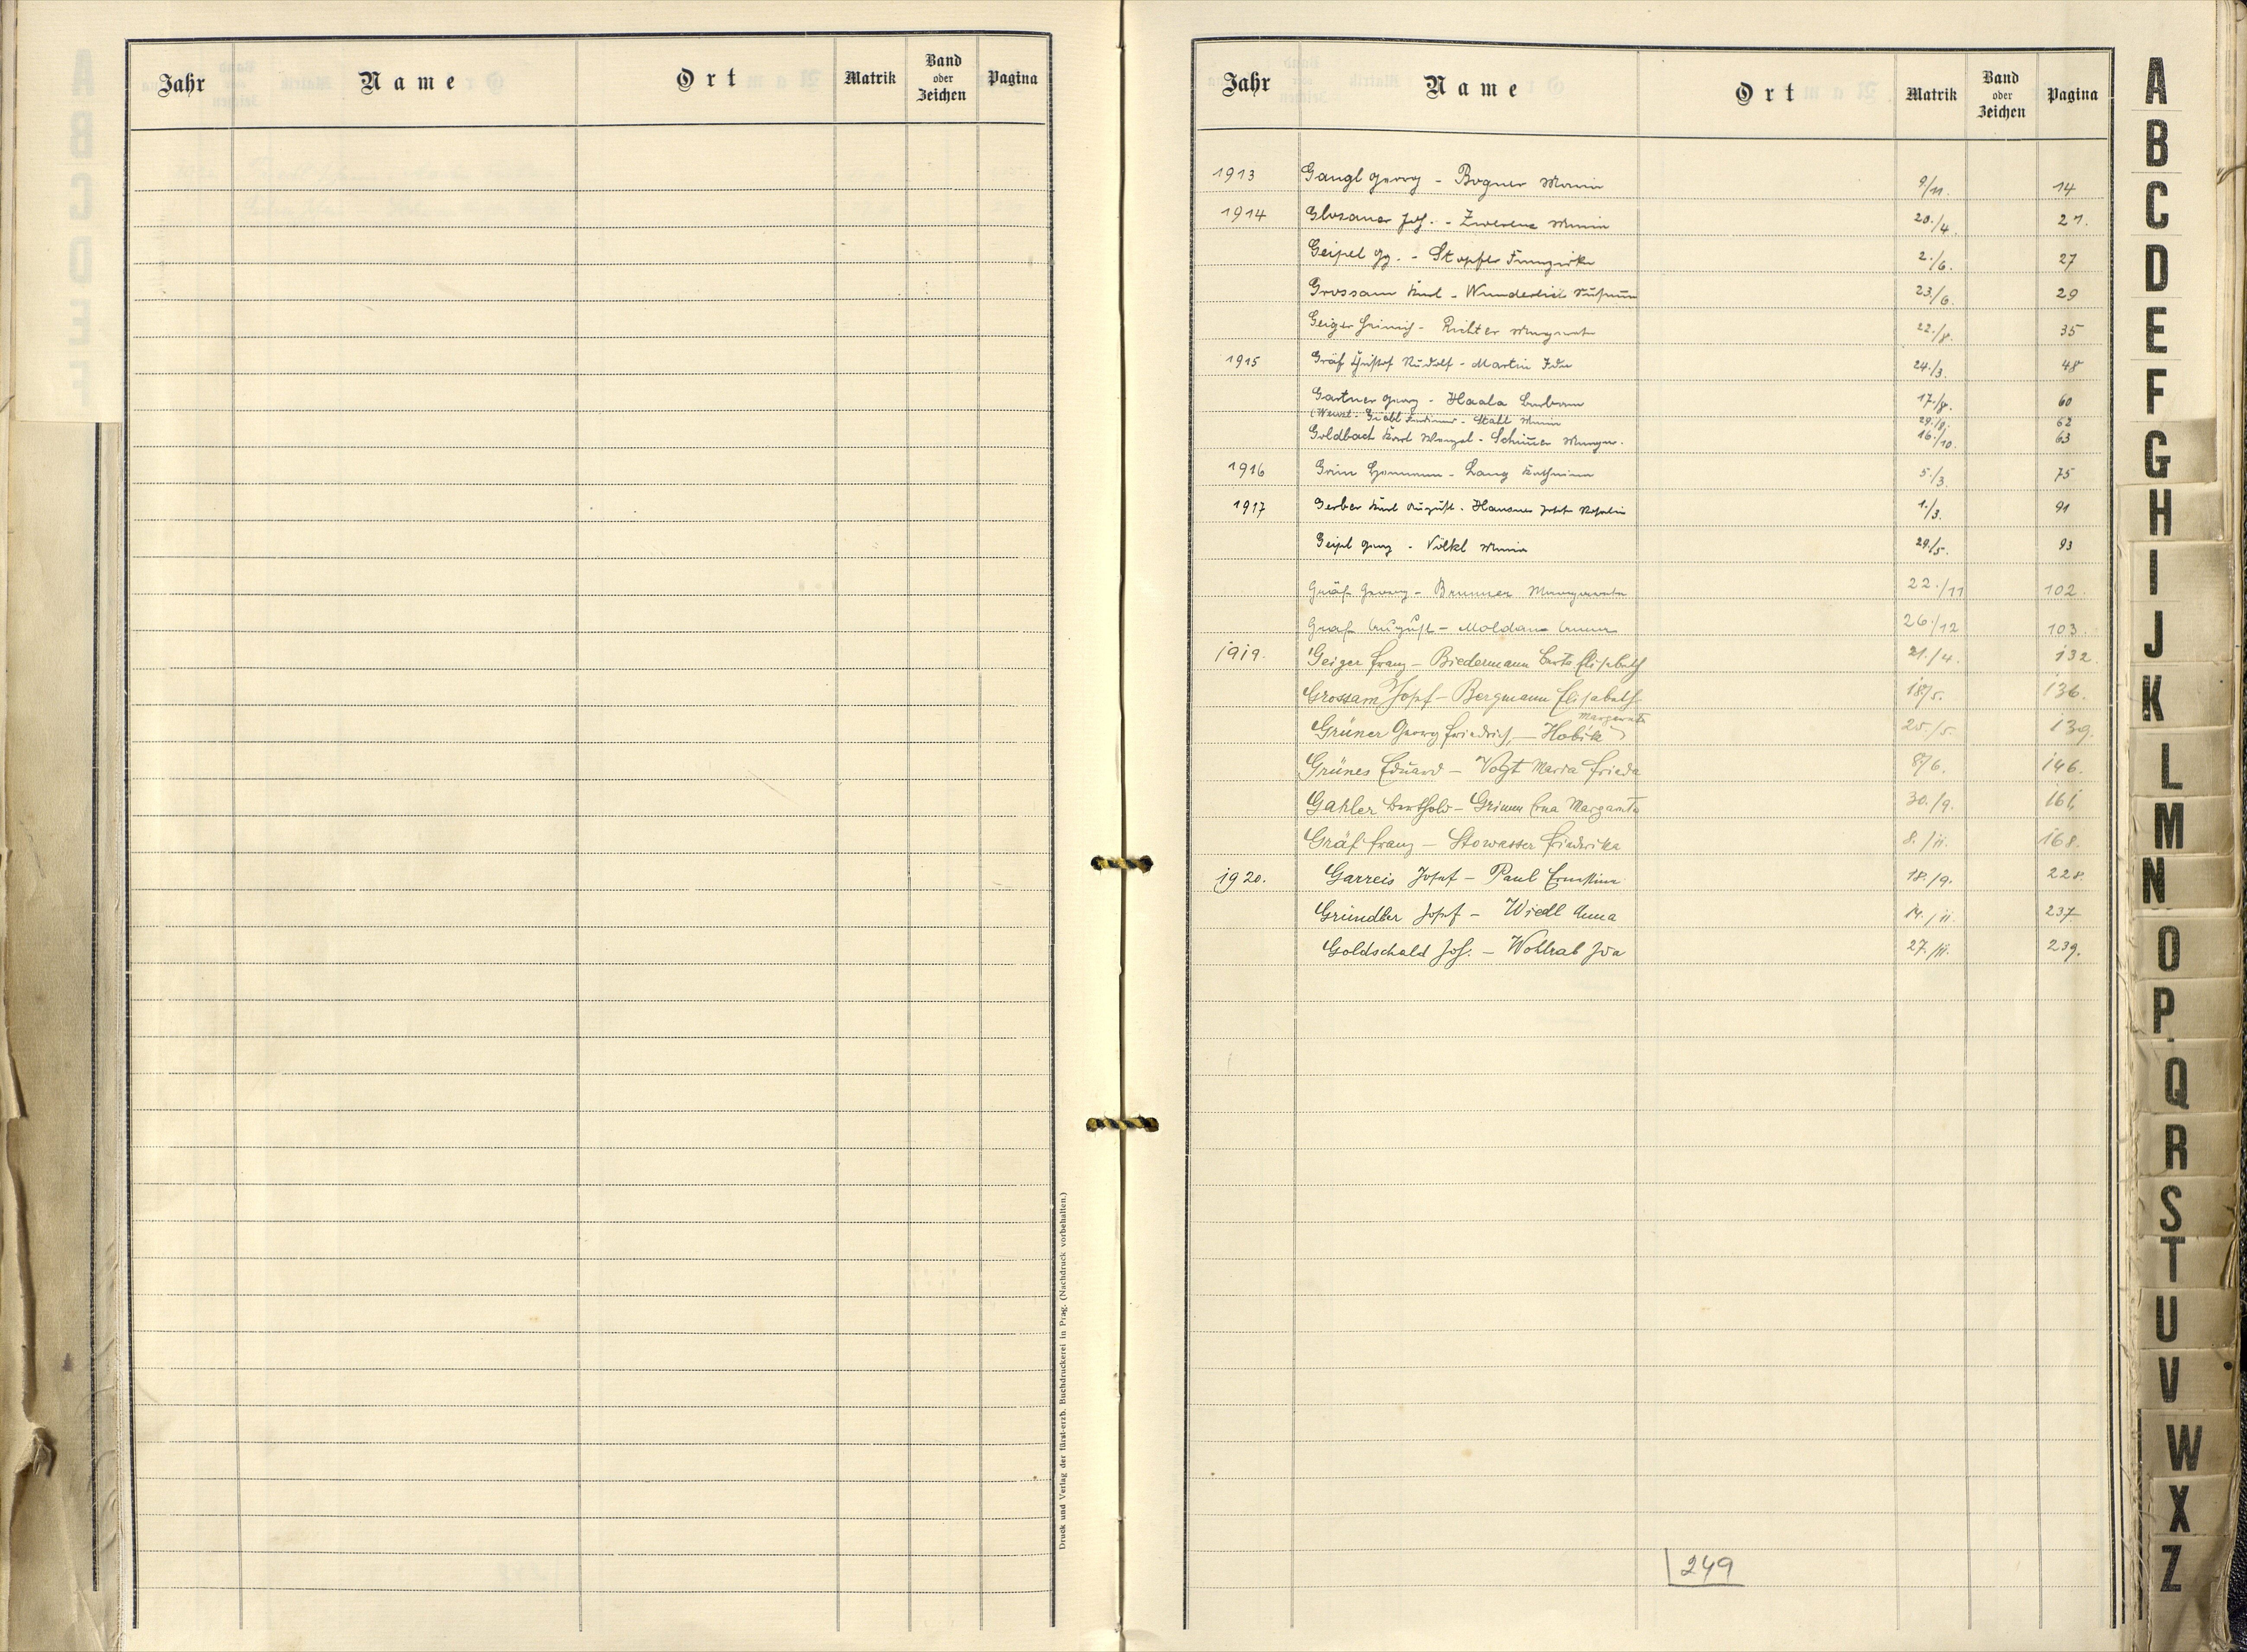 Jahr Name Ort Matrik Band oder Zeichen Pagina
Druck und Verlag der fürst-erzb. Buchdruckerei in Prag. (Nachdruck vorbehalten.)
Jahr Name Ort Matrik Band oder Zeichen Pagina
1913 Gangl Georg - Bogner Maria 9/11. 14
1914 Glosauer Jos. - Zwerenz Maria 20./4. 21.
Geipel Gg. - Stopfer Franziska 2./6. 27
Grossam Karl - Wunderlich 23/6. 29
Geiger Heinrich - Richter Margareta 22./8. 35
1915 Gräf Christof Rudolf - Martin Ida 24./3. 48
Gartner Georg - Haala Barbara 17./8. 60
Gräbl Ferdinand - Stahl Maria 29./8. 62
Goldbach Karl Wenzel - Schimer Margar. 16./10. 63
1916 Grim Hermann - Lang Katharina 5./3. 75
1917 Gerber Karl August - Hausner Rosalia 1./3. 91
Geipl Georg - Völkl Maria 29./5. 93
Gräf Georg - Brunner Margareta 22./11 102.
Graf August - Moldan Anna 26./12 103.
1919. Geiger Franz - Biedermann Berta Elisabeth 21./4. 132.
Grossam Josef - Bergmann Elisabeth 18/5. 136.
Grüner Georg Friedrich, - Hobik Margareta 25./5. 139.
Grünes Eduard - Vogt Maria Frieda 8/6. 146.
Gahler Berthold - Grimm Erna Margareta 30./9. 161.
Gräf Franz - Stowasser Friedrika 8./11. 168.
1920. Garreis Josef - Paul Ernestine 18./9. 228.
Gründler Josef - Wiedl Anna 14./11. 237
Goldschald Jos. - Wohlrab Ida 27./11. 239.
249
A
B
C
D
E
F
G
H
I
J
K
L
M
N
O
P
Q
R
S
T
U
V
W
X
Z